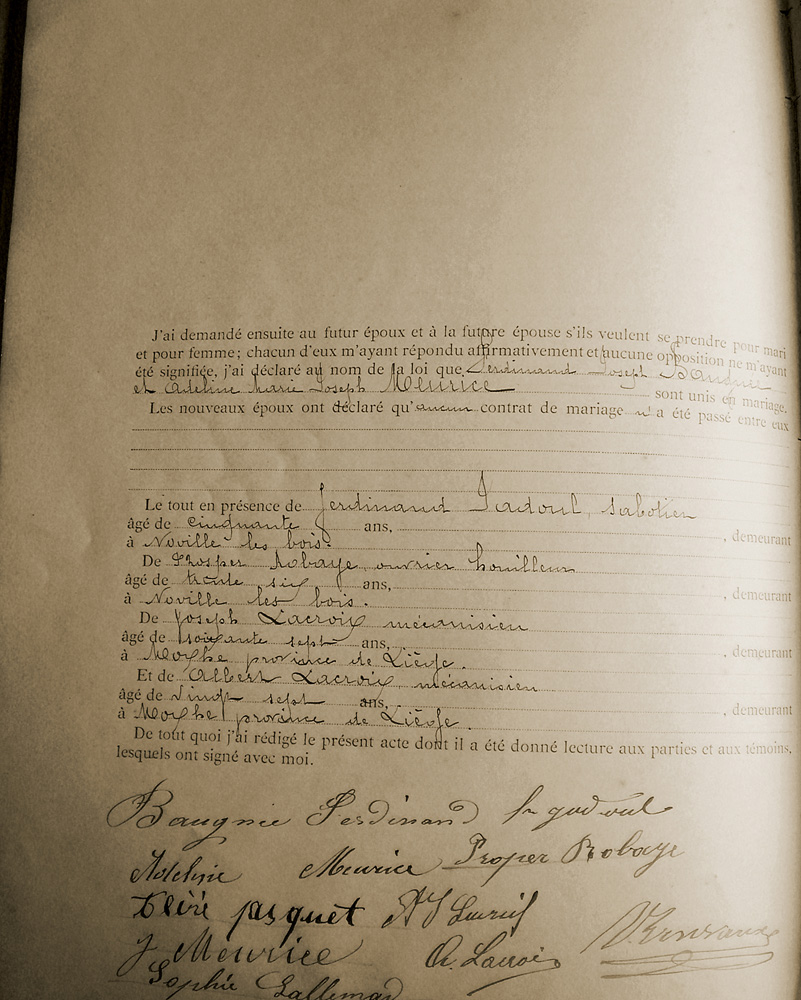 J'ai demandé ensuite au futur époux et à la future épouse s'ils veulent se prendre pour mari
et pour femme; chacun d'eux m'ayant répondu affirmativement et aucune opposition ne m'ayant
été signifiée, j'ai déclaré au nom de la loi que Ferdinand Joseph
et Adeline Marie Joseph Meurice sont unis en mariage.
Les nouveaux époux ont déclaré qu'aucun contrat de mariage n'a été passé entre eux
Le tout en présence de Ferdinand Jadoul, sabotier
âgé de cinquante ans, demeurant
à Noville les bois.
De Prosper Robaye, ouvrier houilleur
âgé de trente six ans, demeurant
à Noville les bois.
De Joseph Lacroix mécanicien
âgé de soixante sept ans, demeurant
à province de Liège.
Et de Albert Lacroix, mécanicien
âgé de vingt sept ans, demeurant
à province de Liège.
De tout quoi j'ai rédigé le présent acte dont il a été donné lecture aux parties et aux témoins,
lesquels ont signé avec moi.
Baugnie Ferdinand Jadoul
Adeline Meurice Proper Robaye
pasquet
J. Meurice A. Lacroix
Sophie